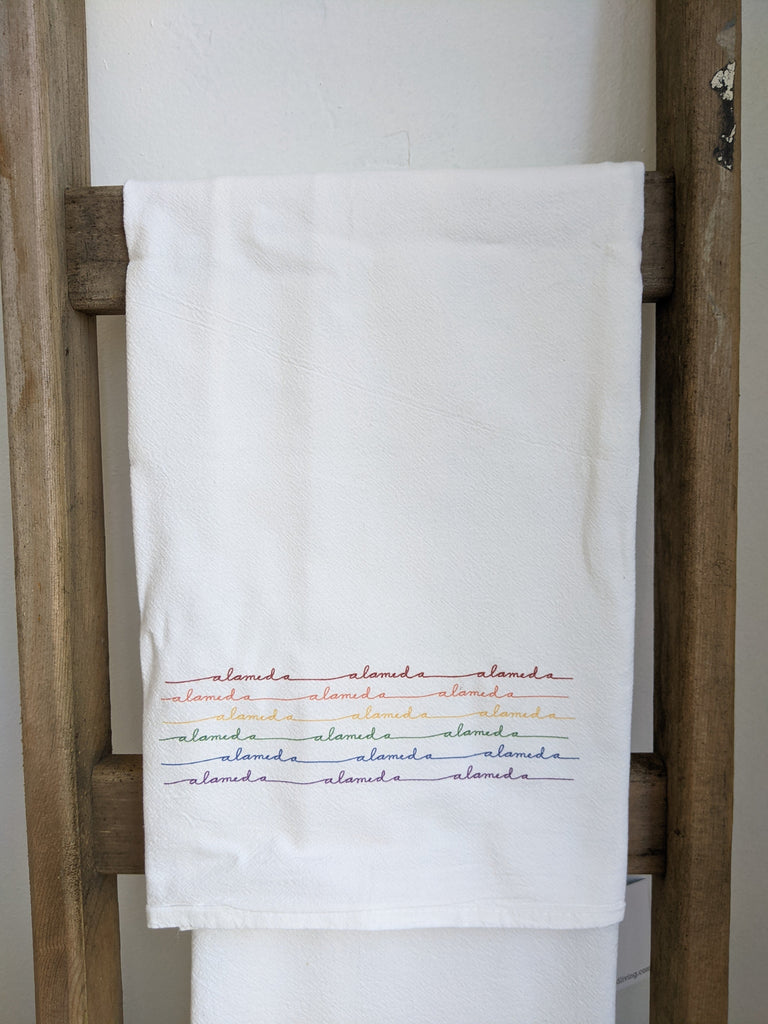 alameda alameda alameda
alameda alameda alameda
alameda alameda alameda
alameda alameda alameda
alameda alameda alameda
alameda alameda alameda